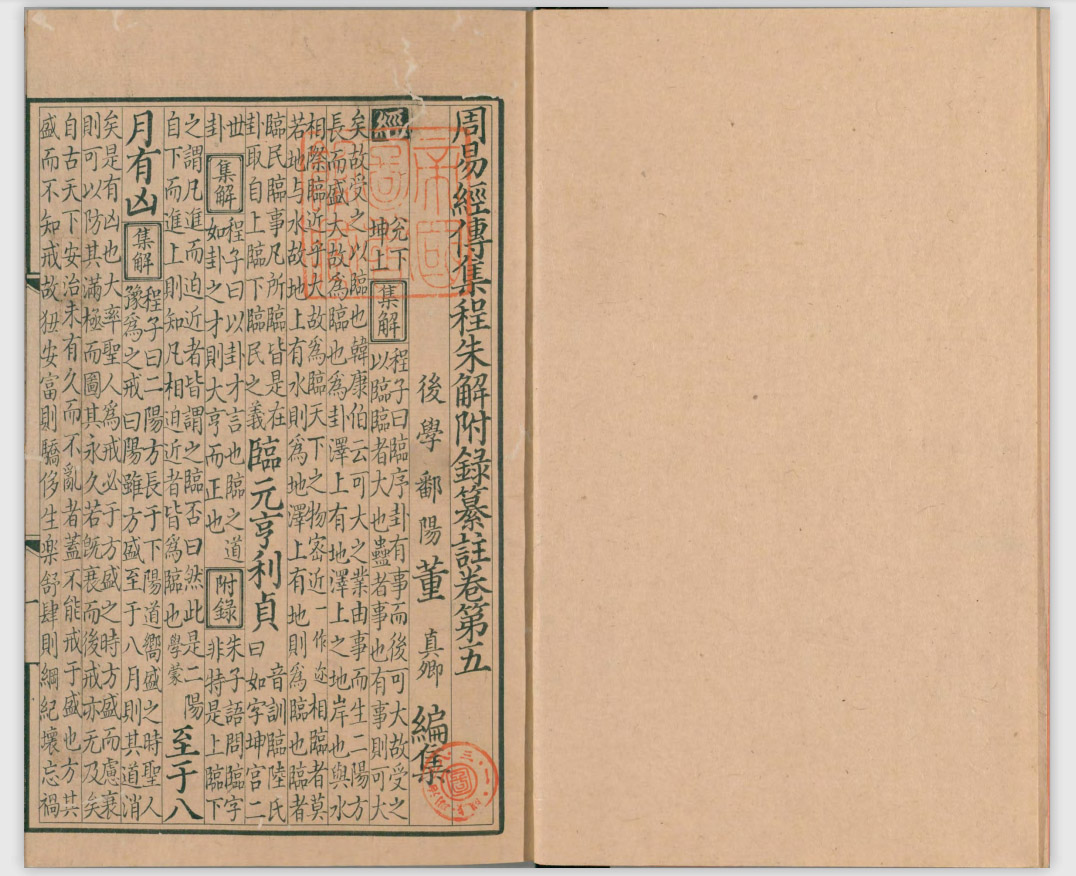 周易經傳集程朱解附錄纂註卷第五
後學鄱陽董真卿編集
經
兌下
坤上
集解
程子曰臨序卦有事而後可大故受之
以臨臨者大也蠱者事也有事則可大
矣故受之以臨也韓康伯云可大之業由事而生二陽方
長而盛大故為臨也為卦澤上有地澤上之地岸也與水
相際臨近乎水故為臨天下之物密近一作迩相臨者莫
若地与水故地上有水則為地澤上有地則為臨也臨者
臨民臨事凡所臨皆是在
卦取自上臨下臨民之義
臨元亨利貞
音訓臨陸氏
曰如字坤宮二
世
卦
集解
程子曰以卦才言也臨之道
如卦之才則大亨而正也
附錄
朱子語問臨字
非特是上臨下
之謂凡進而迫近者皆謂之臨否曰然此是二陽
自下而進上則知凡相迫近者皆為臨也學蒙
至于八
月有凶
集解
程子曰二陽方長于下陽道嚮盛之時聖人
豫為之戒曰陽雖方盛至于八月則其道消
矣是有凶也大率聖人為戒必于方盛之時方盛而慮衰
則可以防其滿極而圖其永久若既衰而後戒亦无及矣
自古天下安治未有久而不亂者蓋不能戒于盛也方其
盛而不知戒故狃安富則驕侈生樂舒肆則綱紀壞忘禍